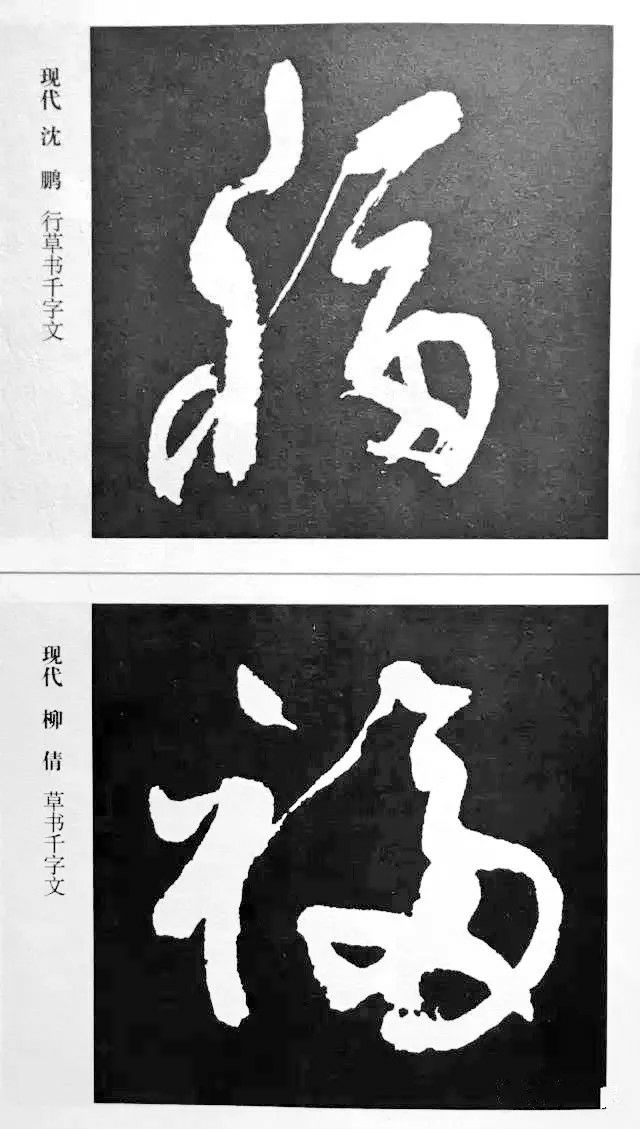 现代 沈鹏 行草书千字文
福
现代 柳倩 草书千字文
福